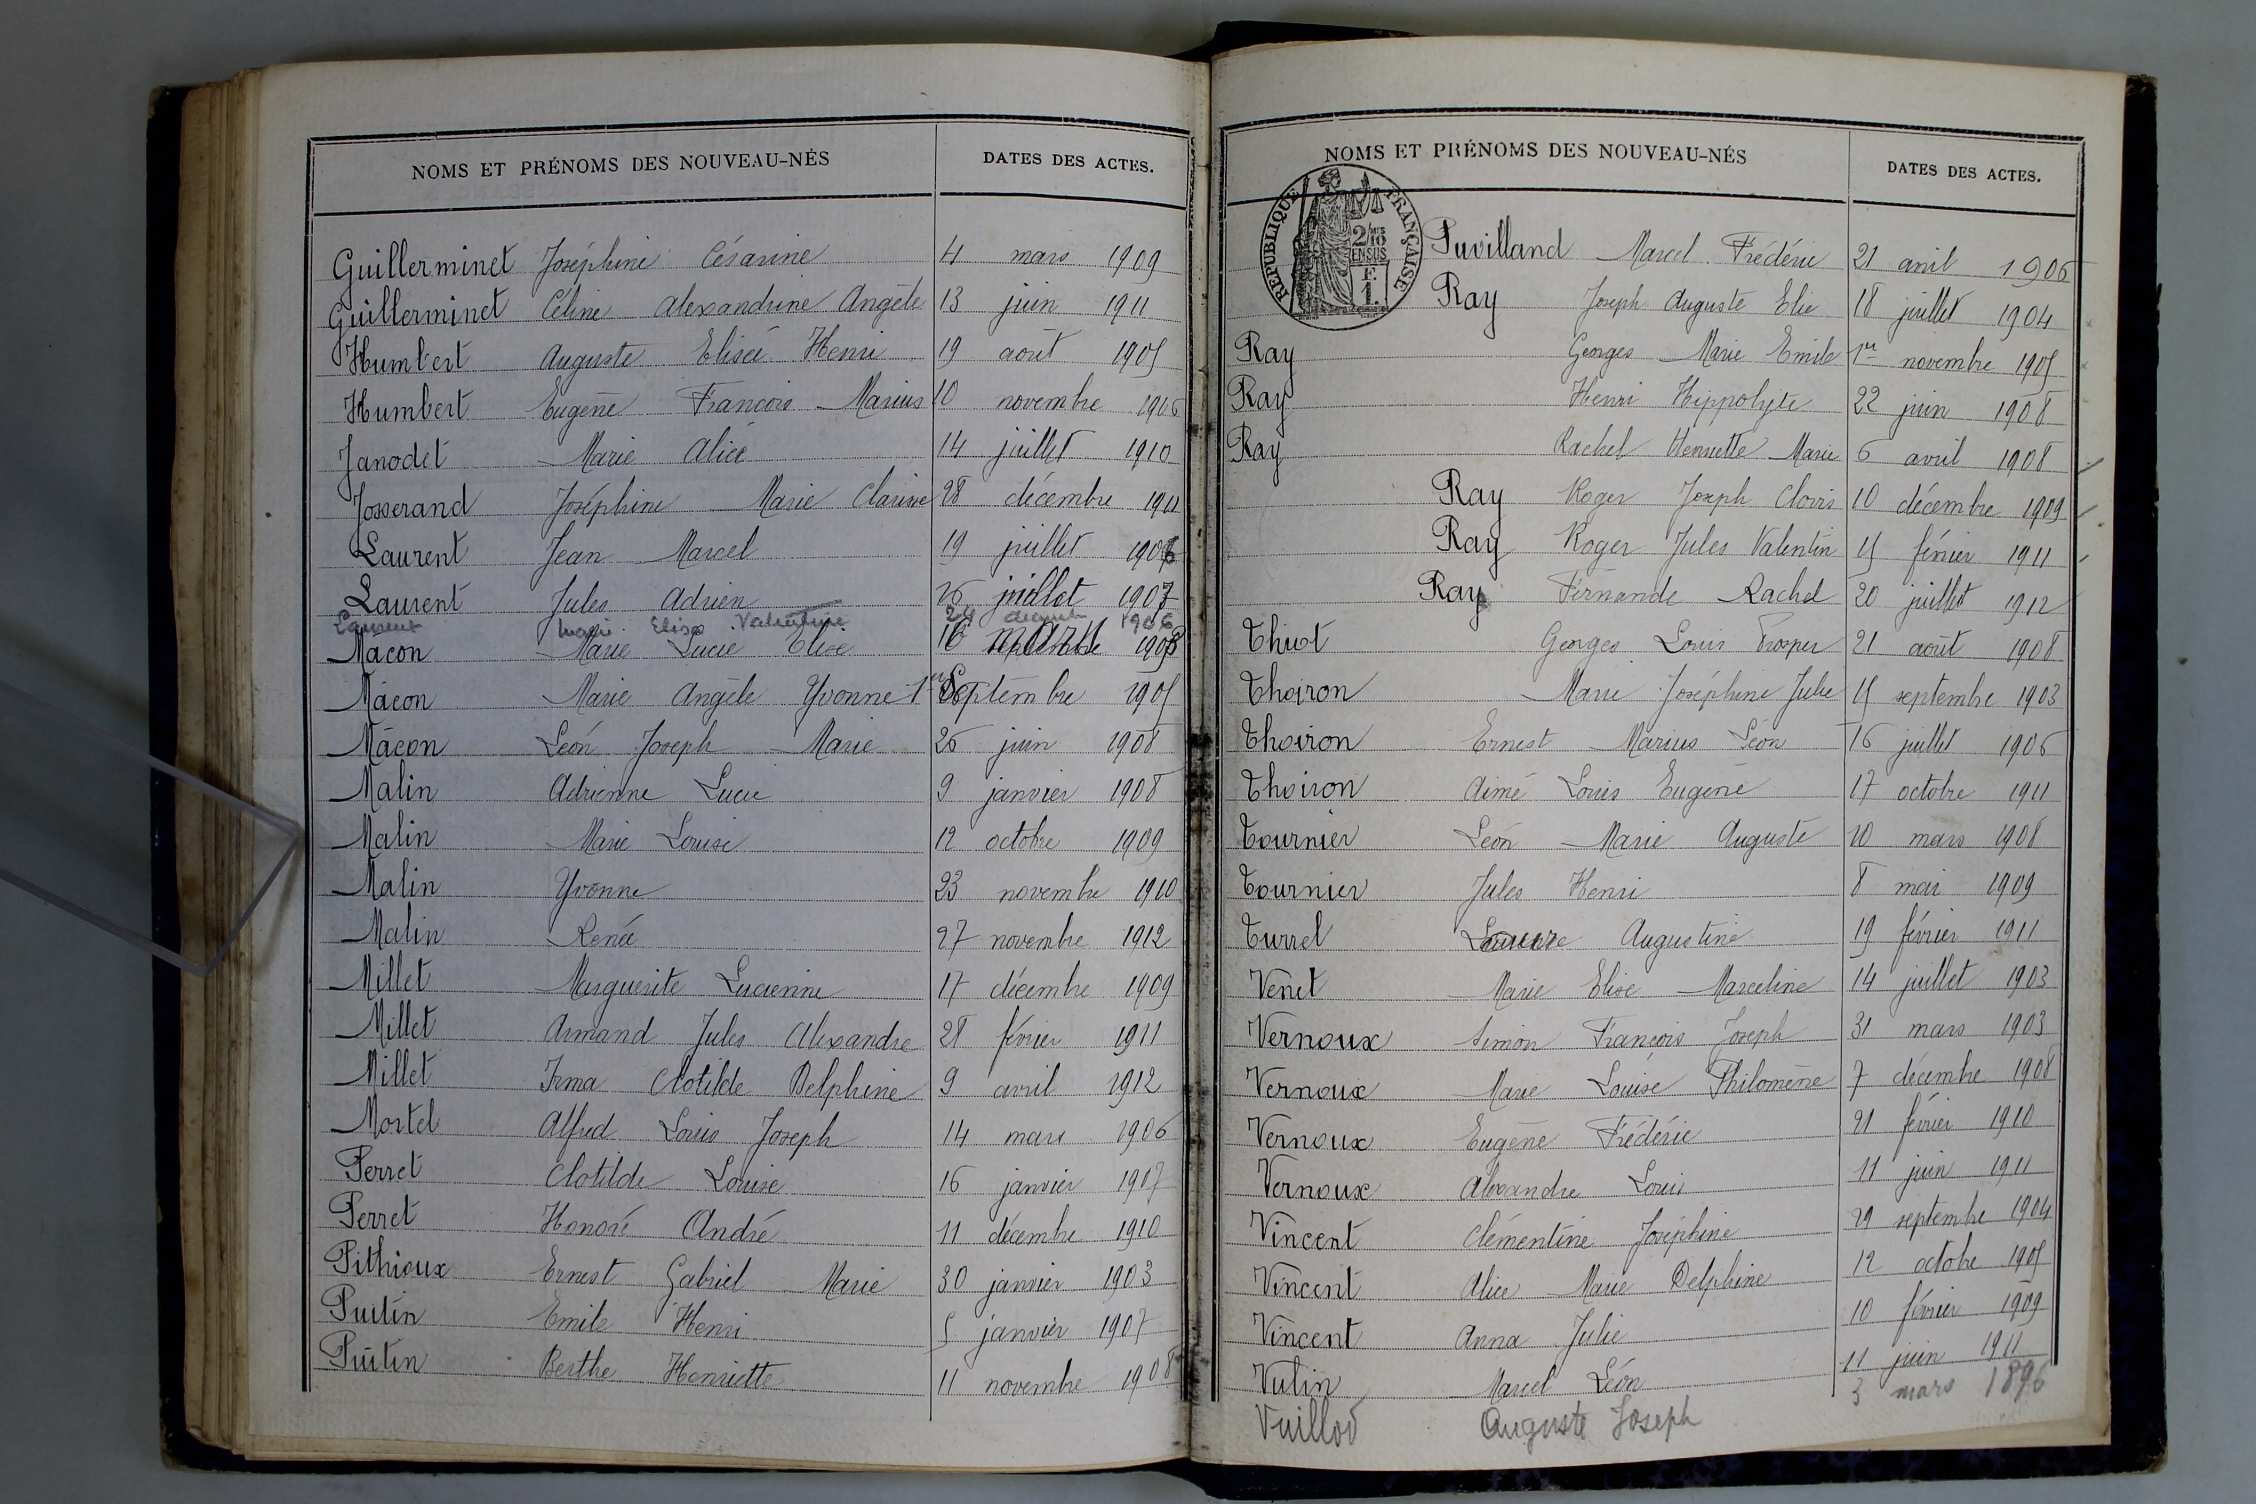 NOMS ET PRÉNOMS DES NOUVEAU-NÉS DATES DES ACTES.
Guillerminet Joséphine Césarine 4 mars 1909
Guillerminet Céline Alexandrine Angèle 13 juin 1911
Humbert Auguste Elisée Henri 19 août 1905
Humbert Eugène François Marius 10 novembre 1906
Janodet Marie Alice 14 juillet 1910
Josserand Joséphine Marie Clarisse 28 décembre 1911
Laurent Jean Marcel 19 juillet 1906
Laurent Jules Adrien 26 juillet 1907
Laurent Marie Elisa Valentine 24 1906
Mâcon Marie Lucie Elise 16 mars 1903
Mâcon Marie Angèle Yvonne 1er Septembre 1905
Mâcon Léon Joseph Marie 26 juin 1908
Malin Adrienne Lucie 9 janvier 1908
Malin Marie Louise 12 octobre 1909
Malin Yvonne 23 novembre 1910
Malin Renée 27 novembre 1912
Millet Marguerite Lucienne 17 décembre 1909
Millet Armand Jules Alexandre 28 février 1911
Millet Irma Clotilde Delphine 9 avril 1912
Mortel Alfred Louis Joseph 14 mars 1906
Perret Clotilde Louise 16 janvier 1907
Perret Honoré André 11 décembre 1910
Pithioux Ernest Gabriel Marie 30 janvier 1903
Puitin Emile Henri 5 janvier 1907
Puitin Berthe Henriette 11 novembre 1908
NOMS ET PRÉNOMS DES NOUVEAU-NÉS DATES DES ACTES.
RÉPUBLIQUE FRANÇAISE
2/10 EN SUS
F.
1.
Puvilland Marcel Frédéric 21 avril 1906
Ray Joseph Auguste Elie 18 juillet 1904
Ray Georges Marie Emile 1er novembre 1905
Ray Henri Hippolyte 22 juin 1908
Ray Rachel Henriette Marie 6 avril 1908
Ray Roger Joseph Clovis 10 décembre 1909
Ray Roger Jules Valentin 15 février 1911
Ray Fernande Rachel 20 juillet 1912
Thiot Georges Louis Prosper 21 août 1908
Thoiron Marie Joséphine Julie 15 septembre 1903
Thoiron Ernest Marius Léon 16 juillet 1906
Thoiron Aimé Louis Eugène 17 octobre 1911
Tournier Léon Marie Auguste 20 mars 1908
Tournier Jules Henri 8 mai 1909
Turrel Augustine 19 février 1911
Venet Marie Elise Marceline 14 juillet 1903
Vernoux Simon François Joseph 31 mars 1903
Vernoux Marie Louise Philomène 7 décembre 1908
Vernoux Eugène Frédéric 21 février 1910
Vernoux Alexandre Louis 11 juin 1911
Vincent Clémentine Joséphine 29 septembre 1904
Vincent Alice Marie Delphine 12 octobre 1905
Vincent Anna Julie 10 février 1909
Vulin Marcel Léon 11 juin 1911
Vuillod Auguste Joseph 3 mars 1896